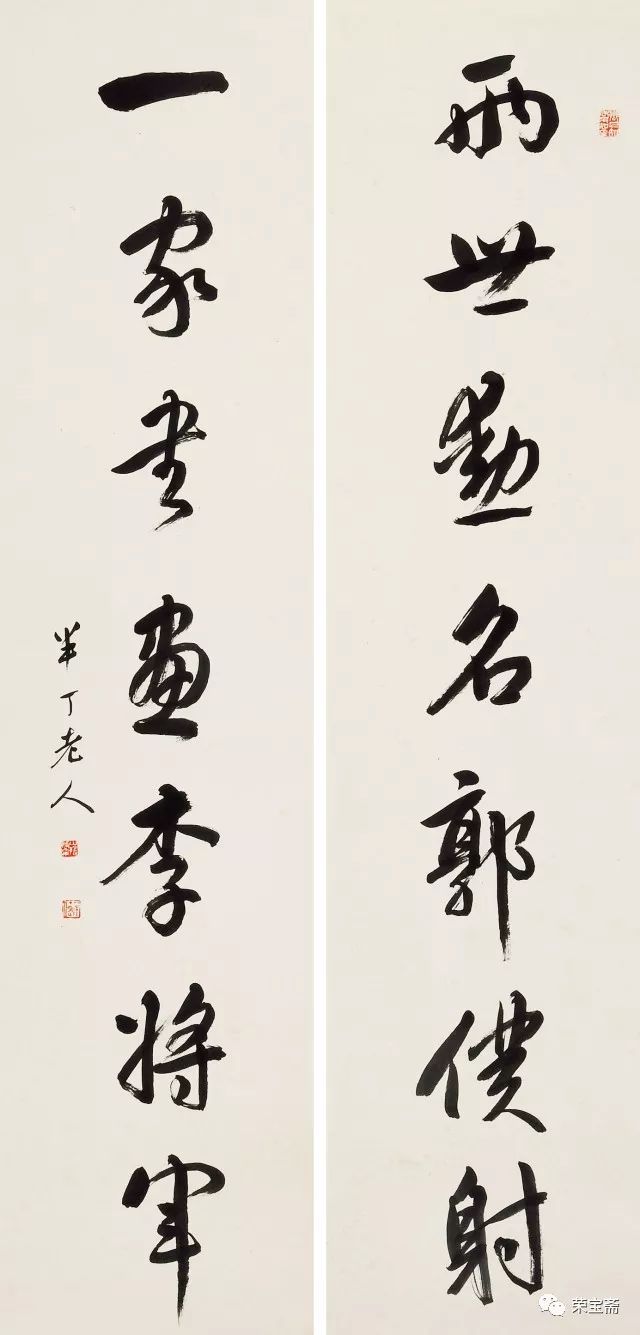 兩世勲名郭僕射
一家書畫李將軍
半丁老人
荣宝斋